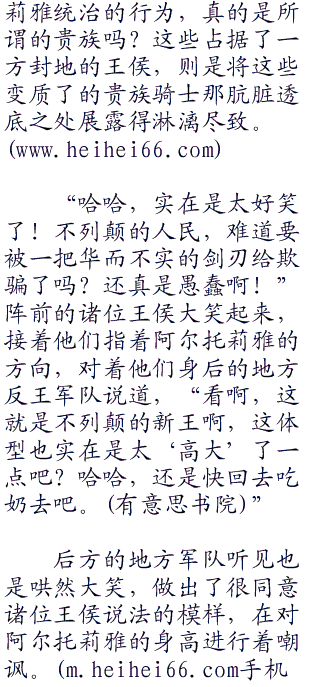 莉雅统治的行为，真的是所
谓的贵族吗？这些占据了一
方封地的王侯，则是将这些
变质了的贵族骑士那肮脏透
底之处展露得淋漓尽致。
(www.heihei66.com)
“哈哈，实在是太好笑
了！不列颠的人民，难道要
被一把华而不实的剑刃给欺
骗了吗？还真是愚蠢啊！”
阵前的诸位王侯大笑起来，
接着他们指着阿尔托莉雅的
方向，对着他们身后的地方
反王军队说道，“看啊，这
就是不列颠的新王啊，这体
型也实在是太‘高大’了一
点吧？哈哈，还是快回去吃
奶去吧。(有意思书院)”
后方的地方军队听见也
是哄然大笑，做出了很同意
诸位王侯说法的模样，在对
阿尔托莉雅的身高进行着嘲
讽。(m.heihei66.com手机